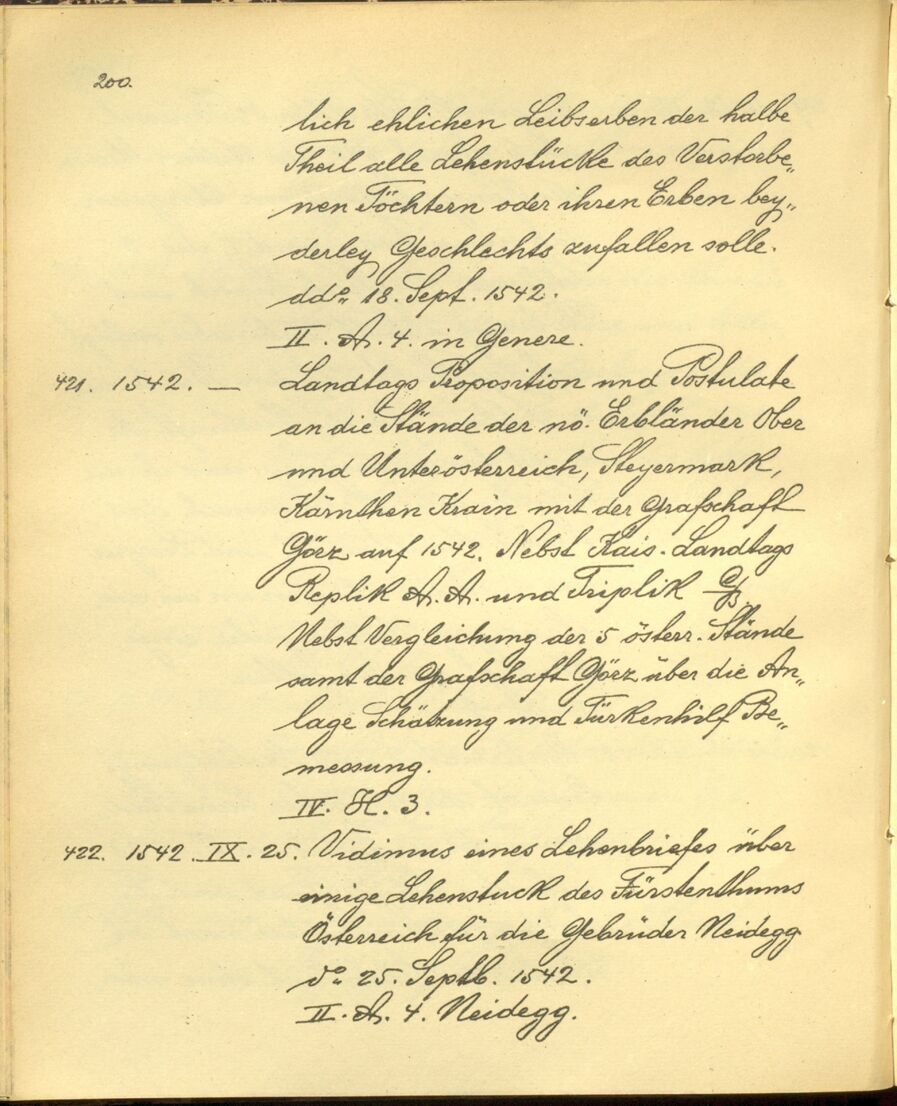 200.
lich ehlichen Leibserben der halbe
Theil alle Lehenstücke des Verstorbe„
nen Töchtern oder ihren Erben bey„
derley Geschlechts zufallen solle.
ddo„ 18. Sept. 1542.
II. A. 4. in Genere.
421. 1542. — Landtags Proposition und Postulate
an die Stände der nö. Erbländer Ober
und Unterösterreich, Steyermark,
Kärnthen Krain mit der Grafschaft
Görz auf 1542. Nebst Kais. Landtags
Replik A. A. und Triplik
Nebst Vergleichung der 5 österr. Stände
samt der Grafschaft Görz über die An„
lage Schätzung und Türkenhilf Be„
messung.
IV. H. 3.
422. 1542. IX. 25. Vidimus eines Lehenbriefes über
einige Lehenstuck des Fürstenthums
Österreich für die Gebrüder Neidegg
do„ 25. Septb. 1542.
II. A. 4. Neidegg.